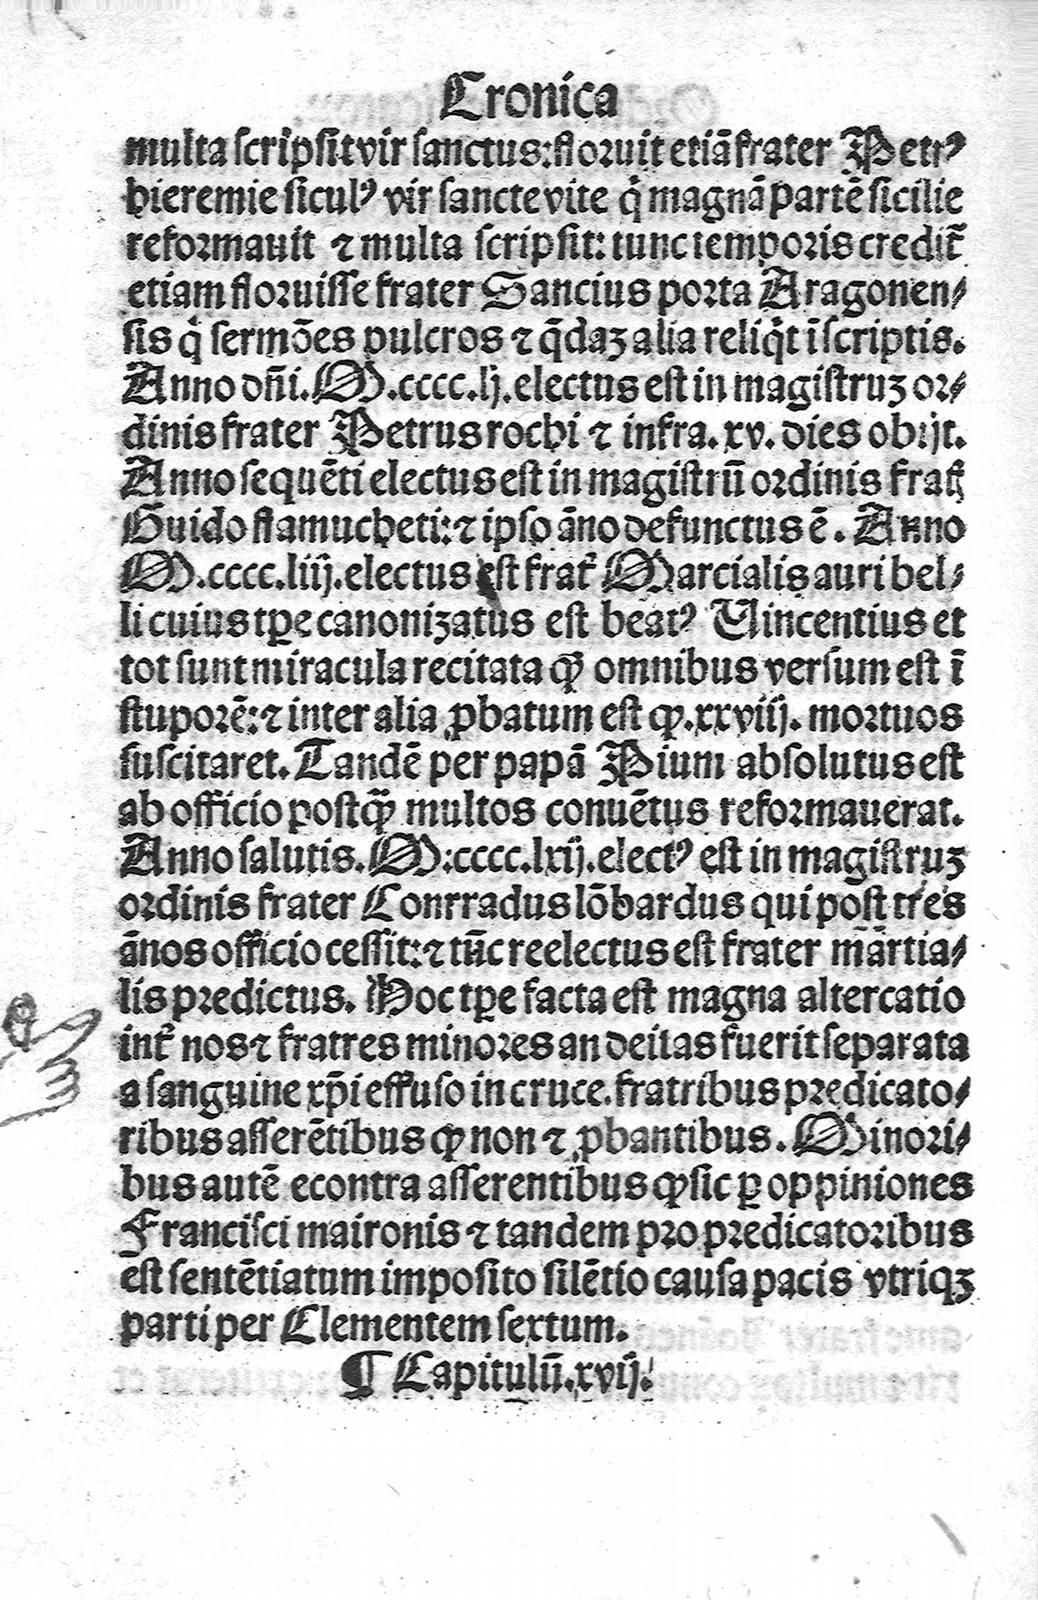 Cronica
multa scripsit vir sanctus: floruit etiā frater Petrꝰ
hieremie siculꝰ vir sancte vite q̇ magnā partē sicilie
reformauit ⁊ multa scripsit: tunc temporis credit̃
etiam floruisse frater Sancius porta Aragonen⸗
sis q̇ sermōes pulcros ⁊ q̄daꝫ alia reliq̇t ī scriptis.
Anno dn̄i. M.cccc.lj. electus est in magistruꝫ or⸗
dinis frater Petrus rochi ⁊ infra. xv. dies obijt.
Anno sequēti electus est in magistrū ordinis frat̃
Guido flamucheti: ⁊ ipso āno defunctus ē. Anno
M.cccc.liij. electus est frat̃ Marcialis auribel⸗
li cuius tꝑe canonizatus est beatꝰ Vincentius et
tot sunt miracula recitata ꝙ omnibus versum est ī
stuporē: ⁊ inter alia ꝓbatum est ꝙ. xxviij. mortuos
suscitaret. Tandē per papā Pium absolutus est
ab officio postꝙ̄ multos conuētus reformauerat.
Anno salutis. M:cccc.lxij. electꝰ est in magistruꝫ
ordinis frater Conrradus lōbardus qui post tres
ānos officio cessit: ⁊ tūc reelectus est frater martia⸗
lis predictus. Hoc tꝑe facta est magna altercatio
int̃ nos ⁊ fratres minores an deitas fuerit separata
a sanguine xp̄i effuso in cruce. fratribus predicato⸗
ribus asserētibus ꝙ non ⁊ ꝓbantibus. Minori⸗
bus autē econtra asserentibus ꝙ sic ꝑ oppiniones
Francisci maironis ⁊ tandem pro predicatoribus
est sentētiatum imposito silētio causa pacis vtriqꝫ
parti per Clementem sextum.
¶ Capitulū. xvij.